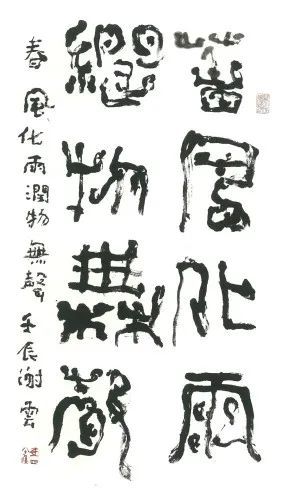 春風化雨
潤物無聲
春風化雨潤物無聲 壬辰謝雲